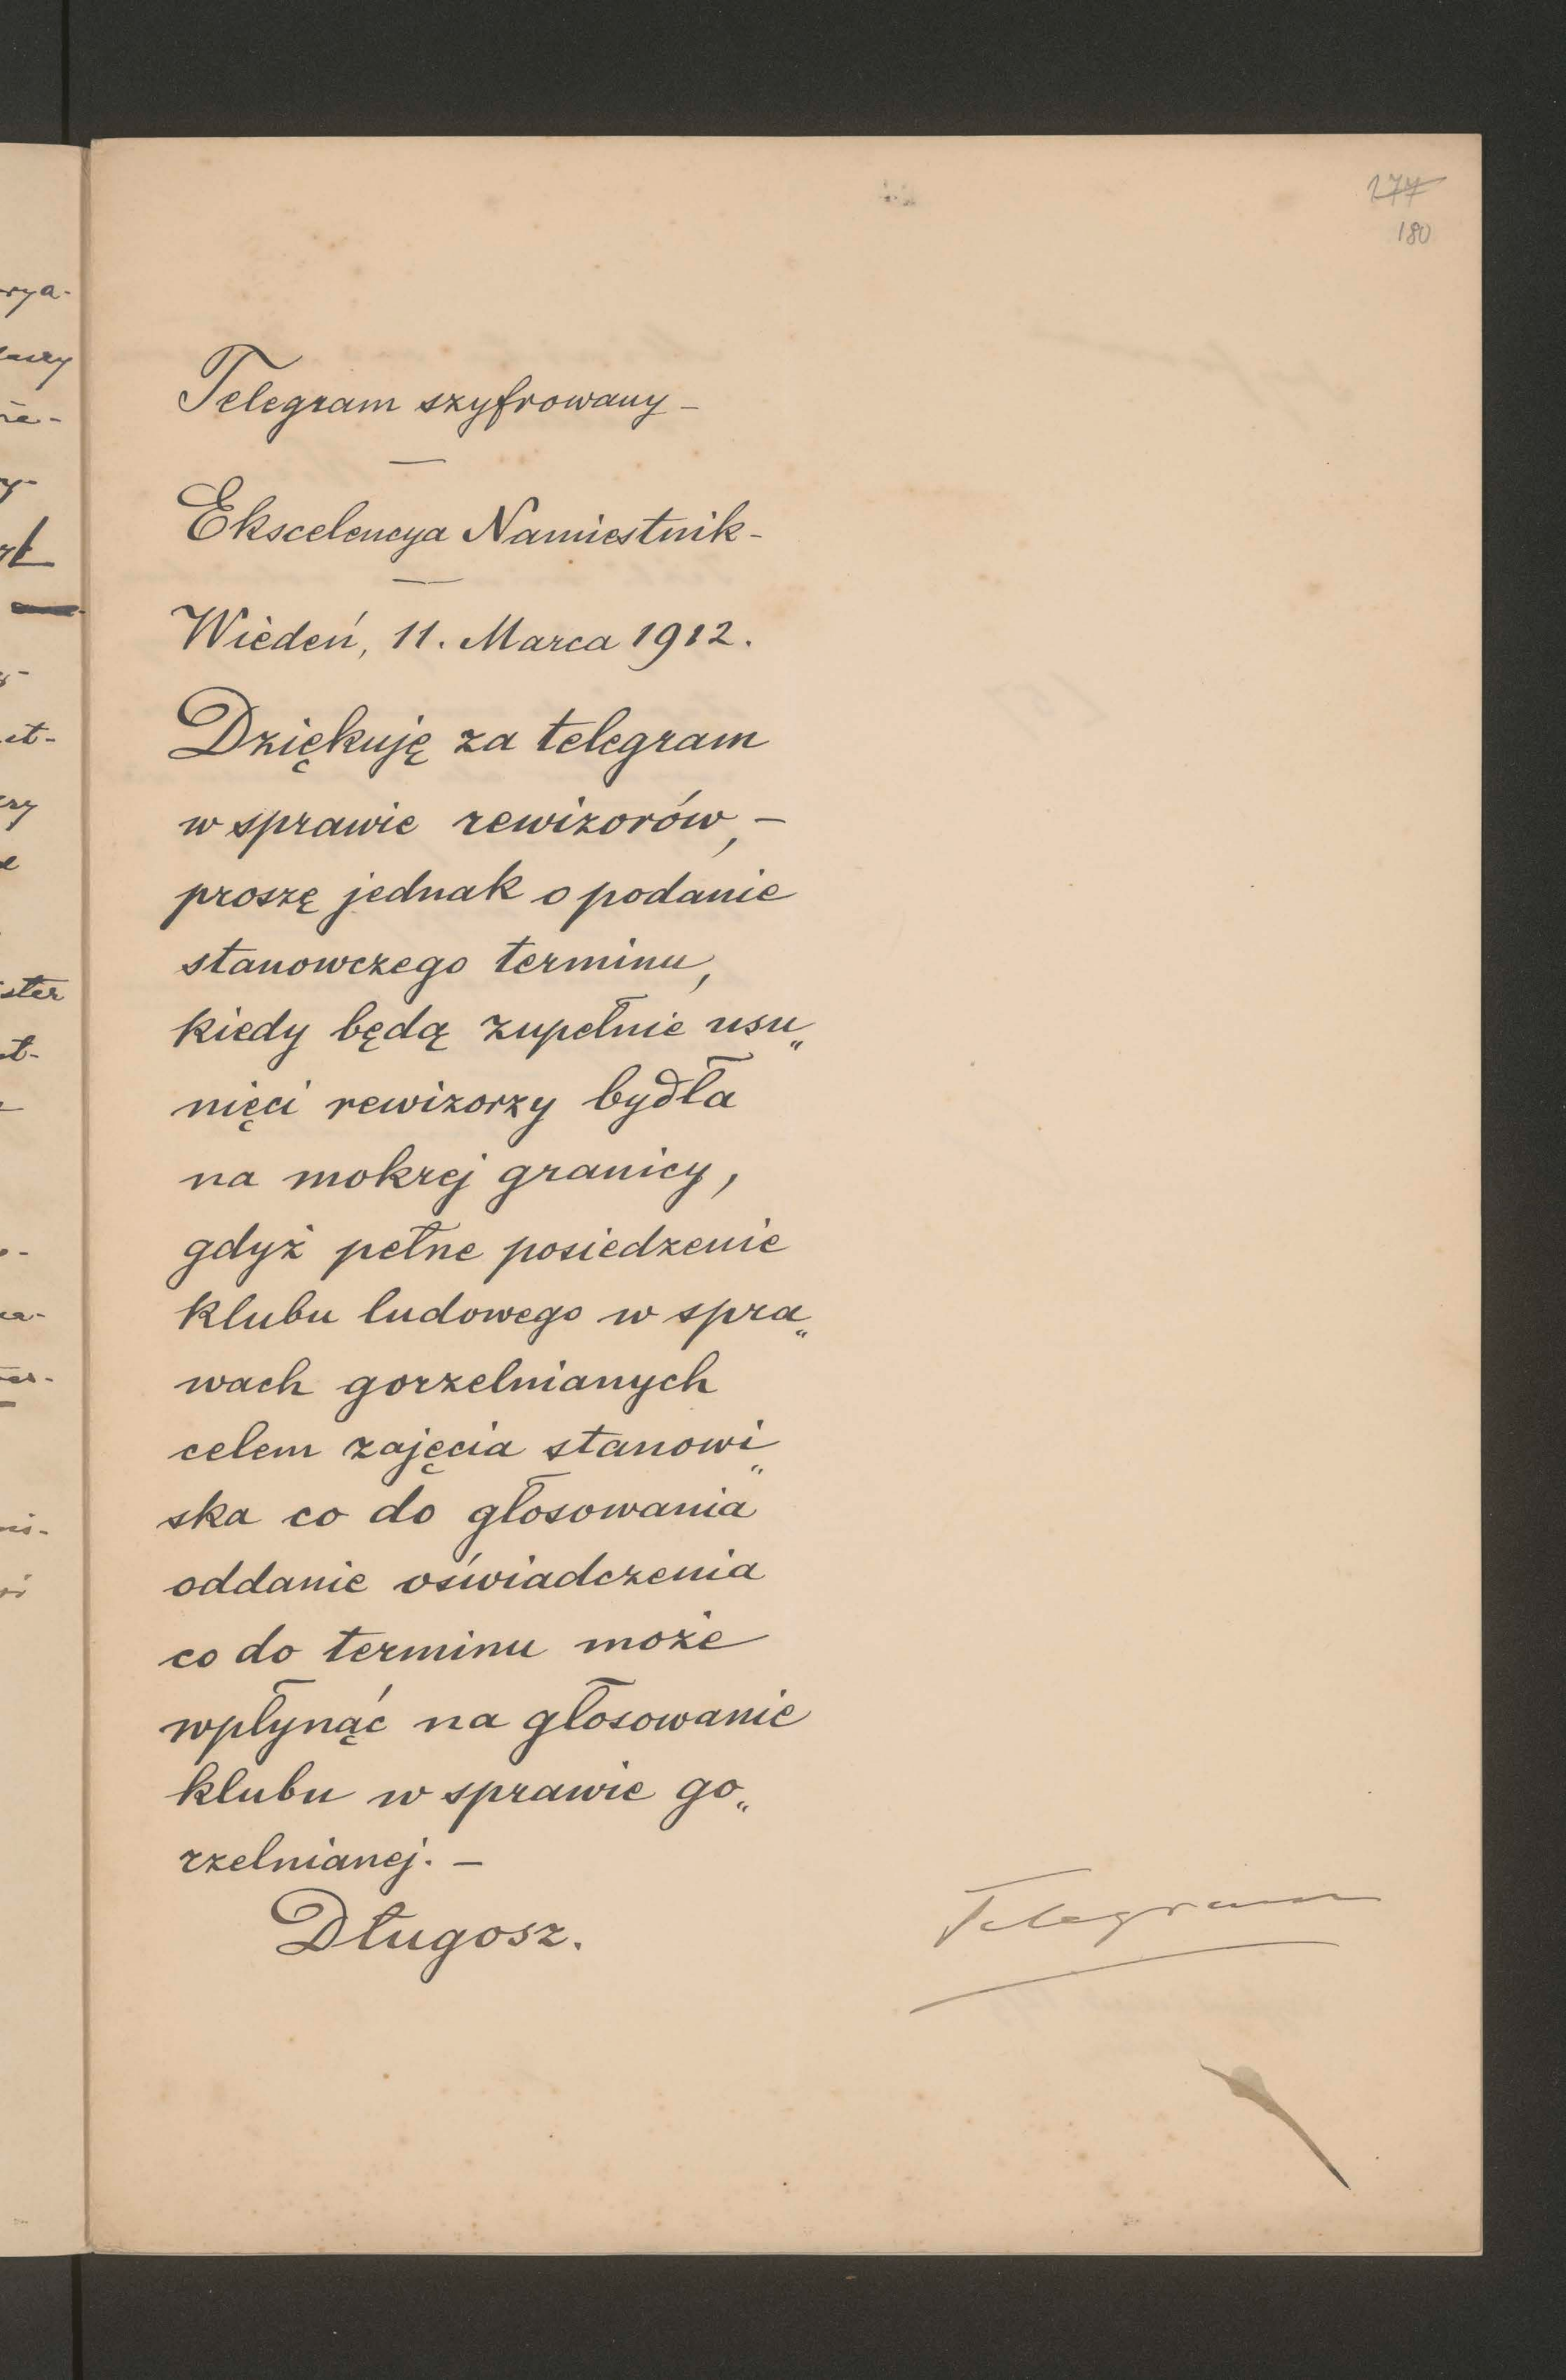 177
180
Telegram szyfrowany –
Ekscelencya Namiestnik –
Wiedeń, 11. Marca 1912.
Dziękuję za telegram
w sprawie rewizorów, –
proszę jednak o podanie
stanowczego terminu,
kiedy będą zupełnie usu„
nięci rewizorzy bydła
na mokrej granicy,
gdyż pełne posiedzenie
klubu ludowego w spra„
wach gorzelnianych
celem zajęcia stanowi„
ska co do głosowania
oddanie oświadczenia
co do terminu może
wpłynąć na głosowanie
klubu w sprawie go„
rzelnianej. –
Długosz.
Telegram